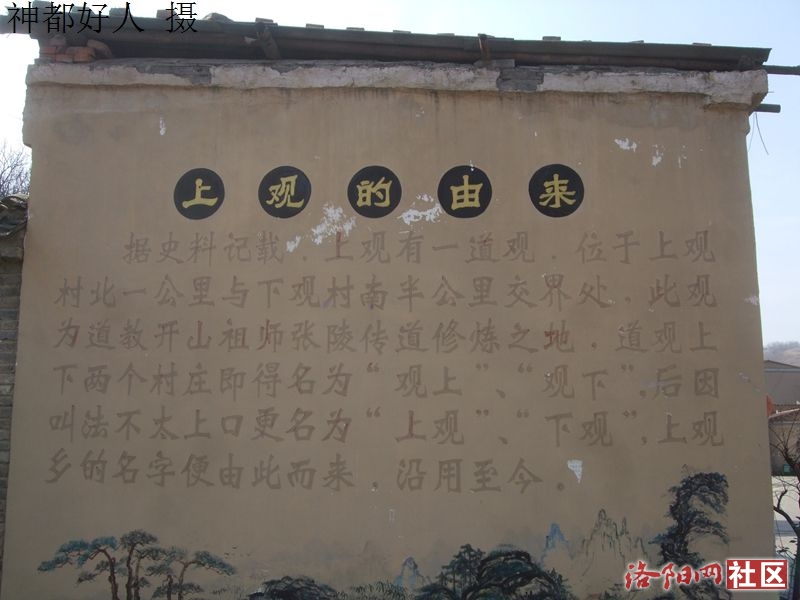 神都好人 摄
上观的由来
据史料记载，上观有一道观，位于上观
村北一公里与下观村南半公里交界处，此观
为道教开山祖师张陵传道修炼之地，道观上
下两个村庄即得名为“观上”、“观下”，后因
叫法不太上口更名为“上观”、“下观”，上观
乡的名字便由此而来，沿用至今。
洛阳网社区